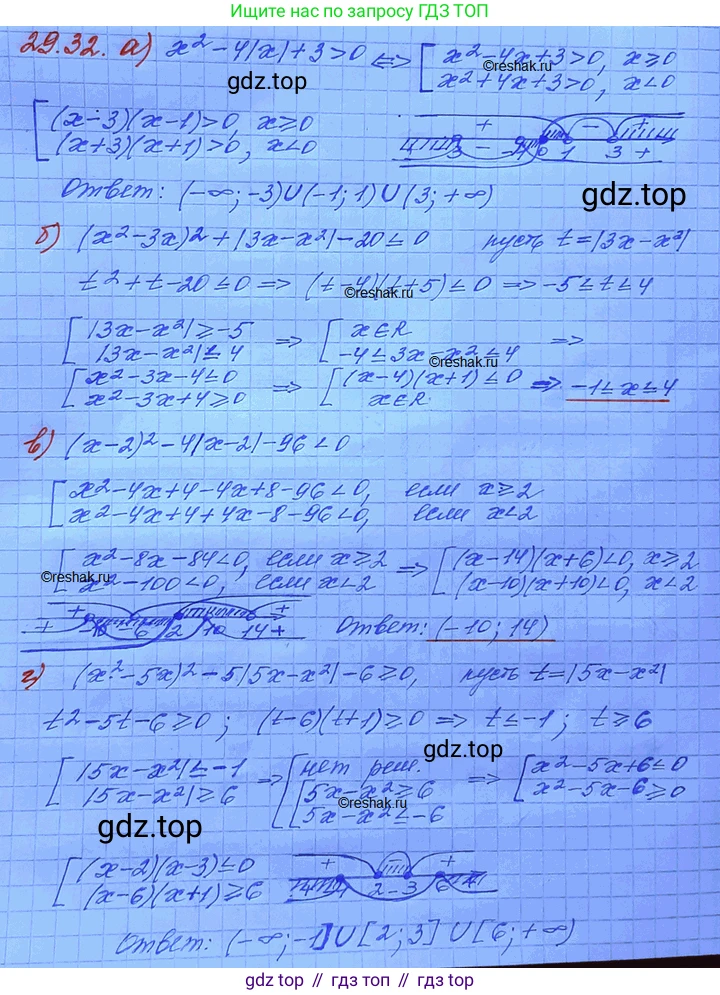 Ищите нас по запросу ГДЗ ТОП
29.32. а) x² - 4|x| + 3 > 0 ⟺ [ x² - 4x + 3 > 0, x ≥ 0
x² + 4x + 3 > 0, x < 0
©reshak.ru
gdz.top
[ (x - 3)(x - 1) > 0, x ≥ 0
(x + 3)(x + 1) > 0, x < 0
+ - +
-3 - -1 0 1 3 +
Ответ: (-∞; -3) ∪ (-1; 1) ∪ (3; +∞)
gdz.top
б) (x² - 3x)² + |3x - x²| - 20 ≤ 0 пусть t = |3x - x²|
t² + t - 20 ≤ 0 ⟹ (t - 4)(t + 5) ≤ 0 ⟹ -5 ≤ t ≤ 4
©reshak.ru
[ |3x - x²| ≥ -5 ⟹ [ x ∈ R ⟹
|3x - x²| ≤ 4 -4 ≤ 3x - x² ≤ 4
©reshak.ru
[ x² - 3x - 4 ≤ 0 ⟹ [ (x - 4)(x + 1) ≤ 0 ⟹ -1 ≤ x ≤ 4
x² - 3x + 4 ≥ 0 x ∈ R
в) (x - 2)² - 4|x - 2| - 96 < 0
[ x² - 4x + 4 - 4x + 8 - 96 < 0, если x ≥ 2
x² - 4x + 4 + 4x - 8 - 96 < 0, если x < 2
[ x² - 8x - 84 < 0, если x ≥ 2 ⟹ [ (x - 14)(x + 6) < 0, x ≥ 2
x² - 100 < 0, если x < 2 (x - 10)(x + 10) < 0, x < 2
©reshak.ru
+ - +
+ -10 -6 2 10 14 +
Ответ: (-10; 14)
г) (x² - 5x)² - 5|5x - x²| - 6 ≥ 0, пусть t = |5x - x²|
t² - 5t - 6 ≥ 0; (t - 6)(t + 1) ≥ 0 ⟹ t ≤ -1; t ≥ 6
gdz.top
[ |5x - x²| ≤ -1 ⟹ [ нет реш. ⟹ [ x² - 5x + 6 ≤ 0
|5x - x²| ≥ 6 [ 5x - x² ≥ 6 x² - 5x - 6 ≥ 0
5x - x² ≤ -6
©reshak.ru
gdz.top
[ (x - 2)(x - 3) ≤ 0
(x - 6)(x + 1) ≥ 6
+ - +
-1 2 - 3 6
Ответ: (-∞; -1] ∪ [2; 3] ∪ [6; +∞)
gdz top // гдз топ // gdz.top